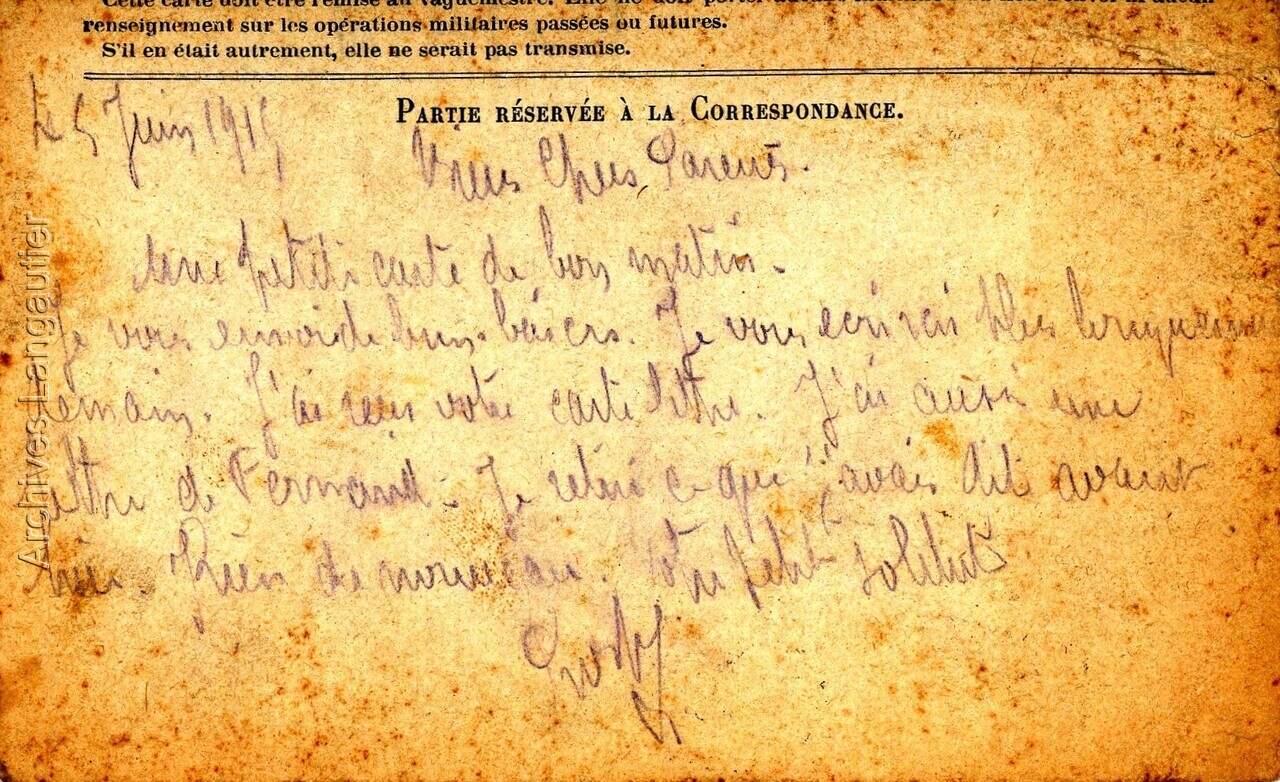 Cette carte doit être remise au vaguemestre. Elle ne doit porter aucune
renseignement sur les opérations militaires passées ou futures.
S'il en était autrement, elle ne serait pas transmise.
PARTIE RÉSERVÉE À LA CORRESPONDANCE.
Le 5 Juin 1915
Chers Parents.
une petite carte de bon matin.
Je vous envoi de bons baisers. Je vous ecrirai plus longuement
emain. J'ai reçu votre carte lettre. J'ai aussi une
ettre de Fernand. Je ce que j'avais dit avant
hier Rien de nouveau. Votre petit soldat
Archives Langautier